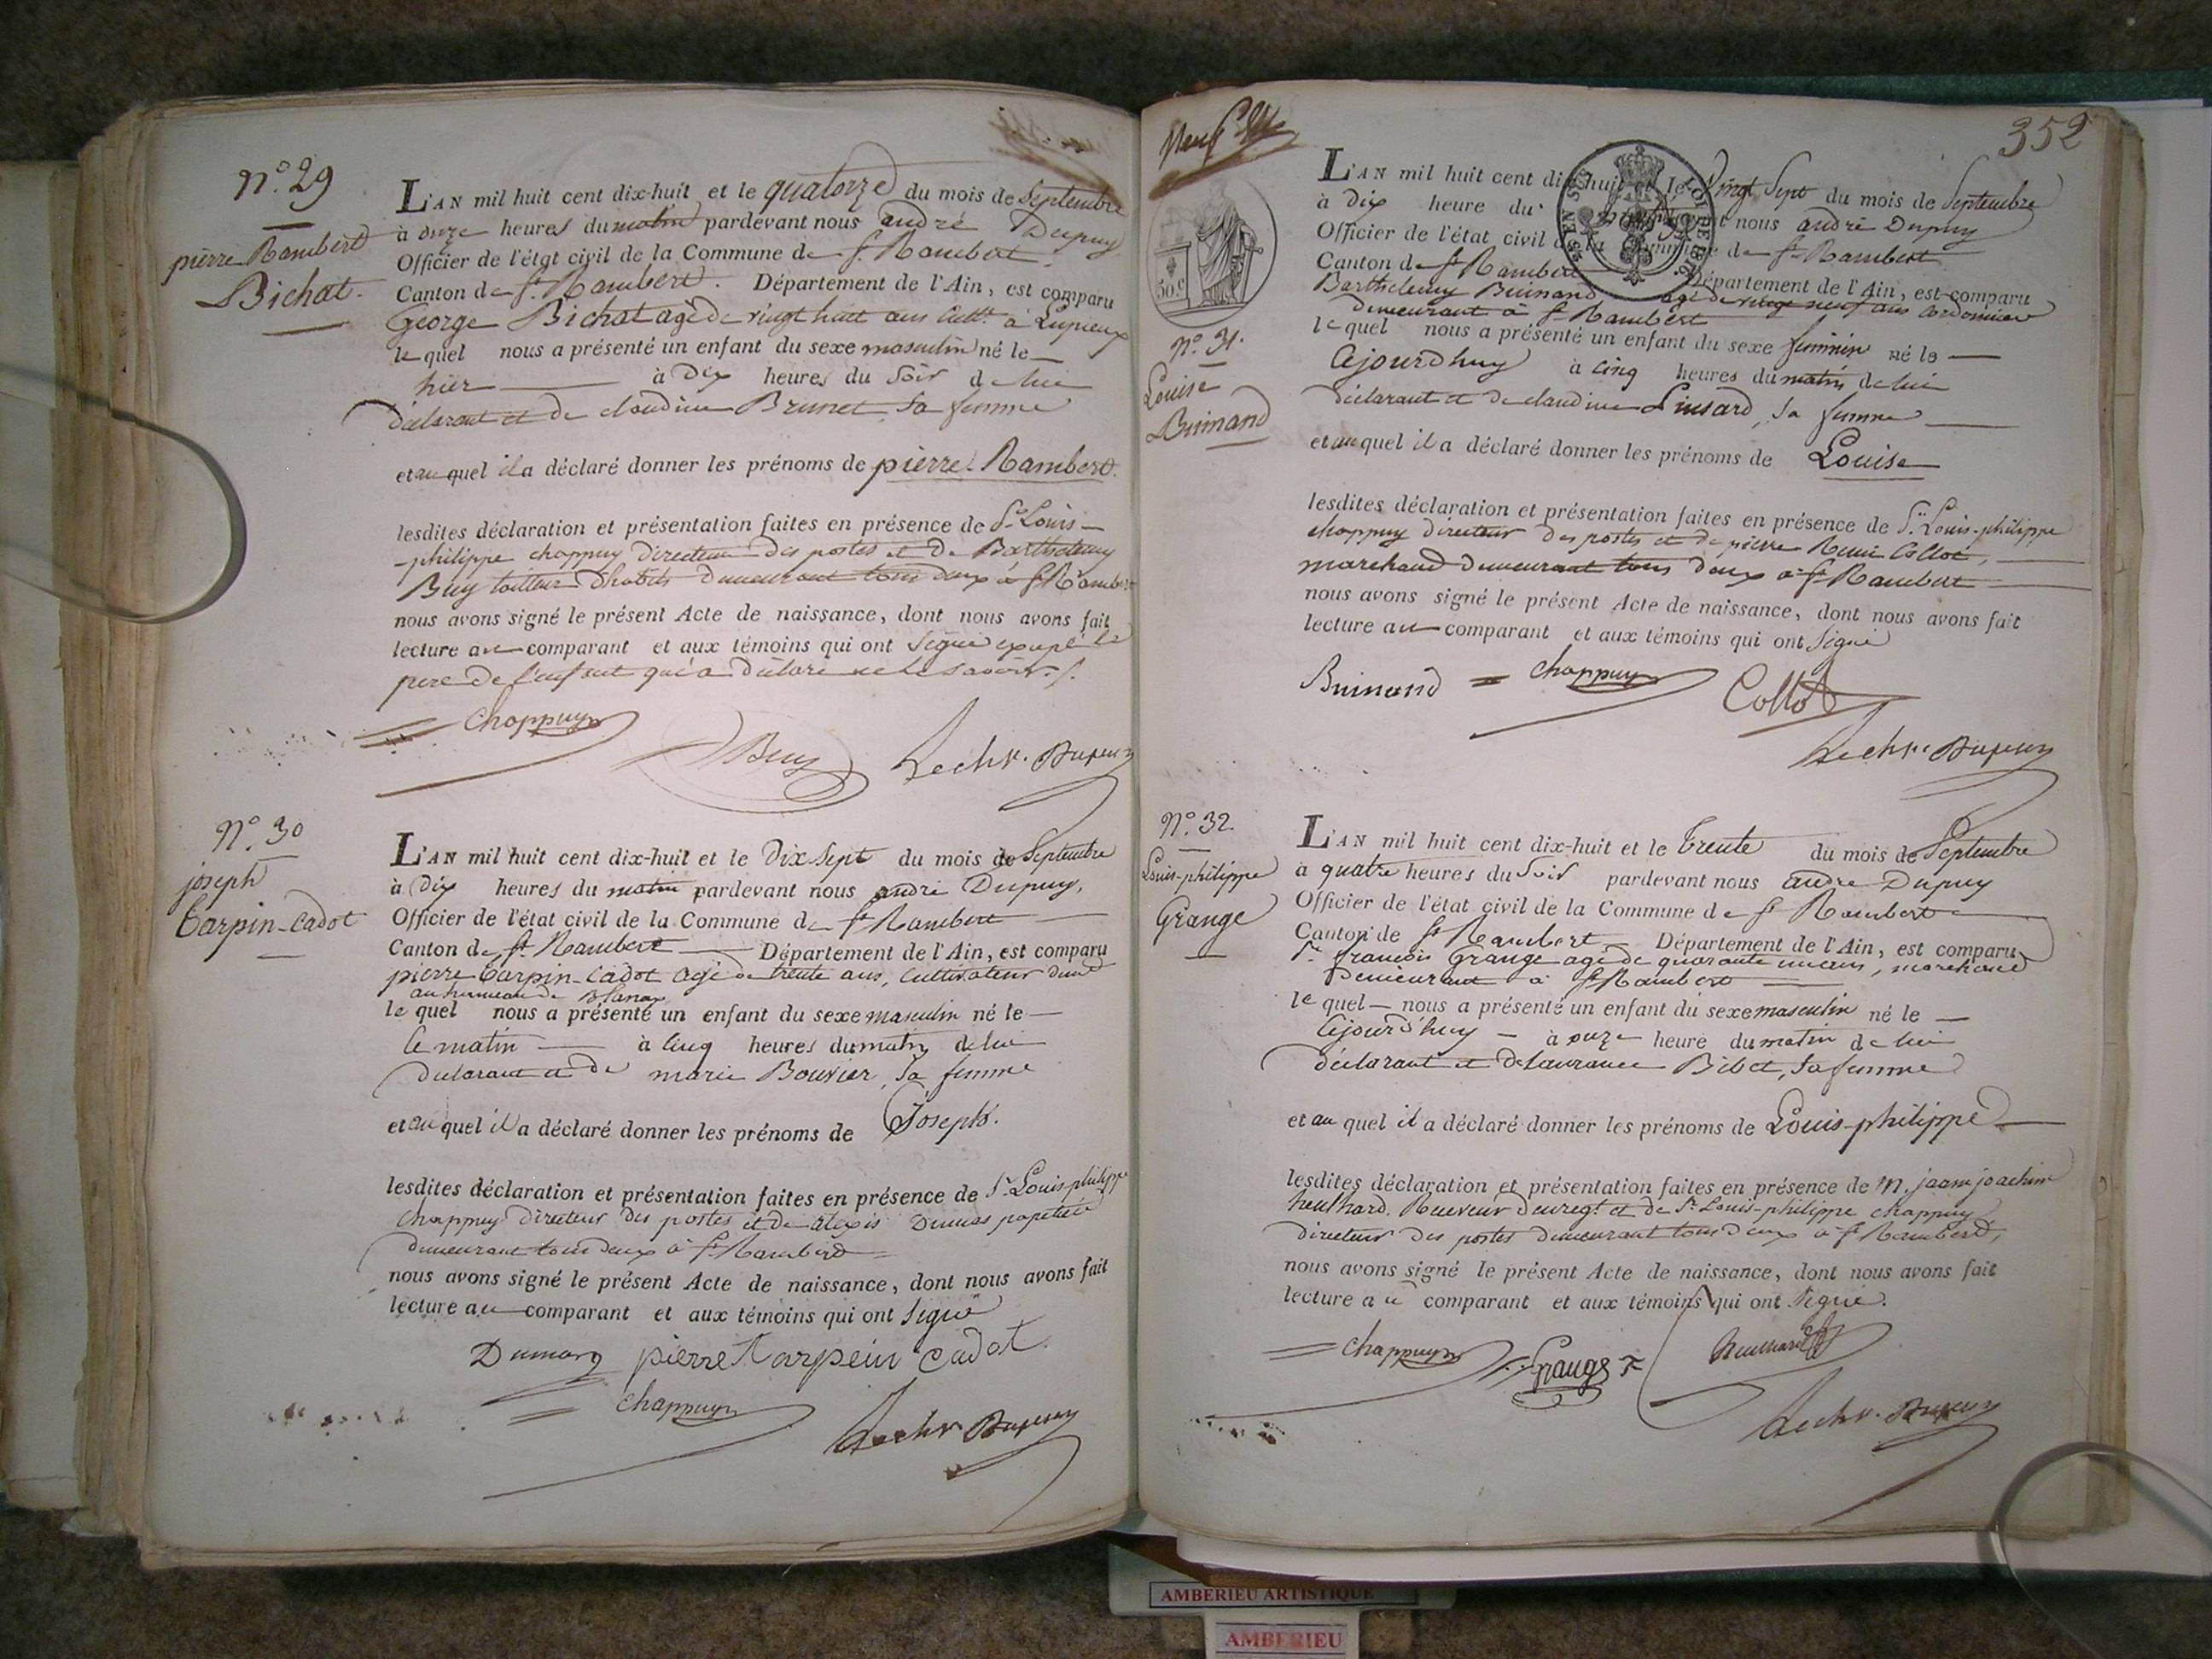 N.º 29
pierre Rambert
Bichat.
L'AN mil huit cent dix-huit et le quatorze du mois de Septembre
à onze heures du matin pardevant nous andré Dupuy
Officier de l'état civil de la Commune de St. Rambert
Canton de St. Rambert. Département de l'Ain, est comparu
George Bichat agé de vingt huit ans cultr. à Lupieux
le quel nous a présenté un enfant du sexe masculin né le
hier à Dix heures du Soir de lui
déclarant et de claudine Brunet sa femme
et au quel il a déclaré donner les prénoms de pierre-Rambert.
lesdites déclaration et présentation faites en présence de Sr. Louis-
philippe chappuy directeur des postes et de Barthelemy
Buy tailleur d'habits demeurant tous deux à St Rambert
nous avons signé le présent Acte de naissance, dont nous avons fait
lecture au comparant et aux témoins qui ont signé excepté le
pere de l'enfant qui a déclaré ne le savoir./.
Chappuy
Buy
Dupuy
N.º 30
joseph
Carpin-Cadot
L'AN mil huit cent dix-huit et le Dix Sept du mois de Septembre
à Dix heures du matin pardevant nous andré Dupuy,
Officier de l'état civil de la Commune de St Rambert
Canton de St. Rambert Département de l'Ain, est comparu
pierre Carpin-Cadot agé de trente ans, cultivateur demt
au hameau de Blanaz
le quel nous a présenté un enfant du sexe masculin né le
ce matin à cinq heures du matin de lui
déclarant et de marie Bouvier, sa femme
et au quel il a déclaré donner les prénoms de Joseph.
lesdites déclaration et présentation faites en présence de Sr. Louis philippe
Chappuy directeur des postes et de alexis Dumas papetier
demeurant tous deux à St Rambert
nous avons signé le présent Acte de naissance, dont nous avons fait
lecture au comparant et aux témoins qui ont signé
Dumas pierre Carpein cadot
Chappuy
Dupuy
352
50.c
N.º 31.
Louise
Buinand
L'AN mil huit cent dix-huit et le vingt Sept du mois de Septembre
à Dix heure du pardevant nous andré Dupuy
Officier de l'état civil de la Commune de St Rambert
Canton de St Rambert Département de l'Ain, est comparu
Barthelemy Buinand agé de vingt neuf ans cordonnier
demeurant à St Rambert
le quel nous a présenté un enfant du sexe feminin né le
Cejourdhuy à cinq heures du matin de lui
déclarant et de claudine Linsard, sa femme
et au quel il a déclaré donner les prénoms de Louise
lesdites déclaration et présentation faites en présence de Sr. Louis-philippe
chappuy directeur des postes et de pierre Remi Collot,
marchand demeurant tous deux à St Rambert
nous avons signé le présent Acte de naissance, dont nous avons fait
lecture au comparant et aux témoins qui ont signé
Buinand Chappuy Collot
Dupuy
N.º 32.
Louis-philippe
Grange
L'AN mil huit cent dix-huit et le trente du mois de Septembre
à quatre heures du Soir pardevant nous andré Dupuy
Officier de l'état civil de la Commune de St Rambert
Canton de St Rambert Département de l'Ain, est comparu
Sr. françois Grange agé de quarante un ans, marchand
demeurant à St Rambert
le quel nous a présenté un enfant du sexe masculin né le
Cejourd'huy à onze heure du matin de lui
déclarant et de Laurance Bibet, sa femme
et au quel il a déclaré donner les prénoms de Louis-philippe
lesdites déclaration et présentation faites en présence de M. jaam joachim
heulhard. Receveur d'enregt et de Sr. Louis-philippe chappuy
directeur des postes demeurant tous deux à St Rambert,
nous avons signé le présent Acte de naissance, dont nous avons fait
lecture au comparant et aux témoins qui ont signé.
Chappuy Grange heulhard
Dupuy
AMBERIEU ARTISTIQUE
AMBERIEU